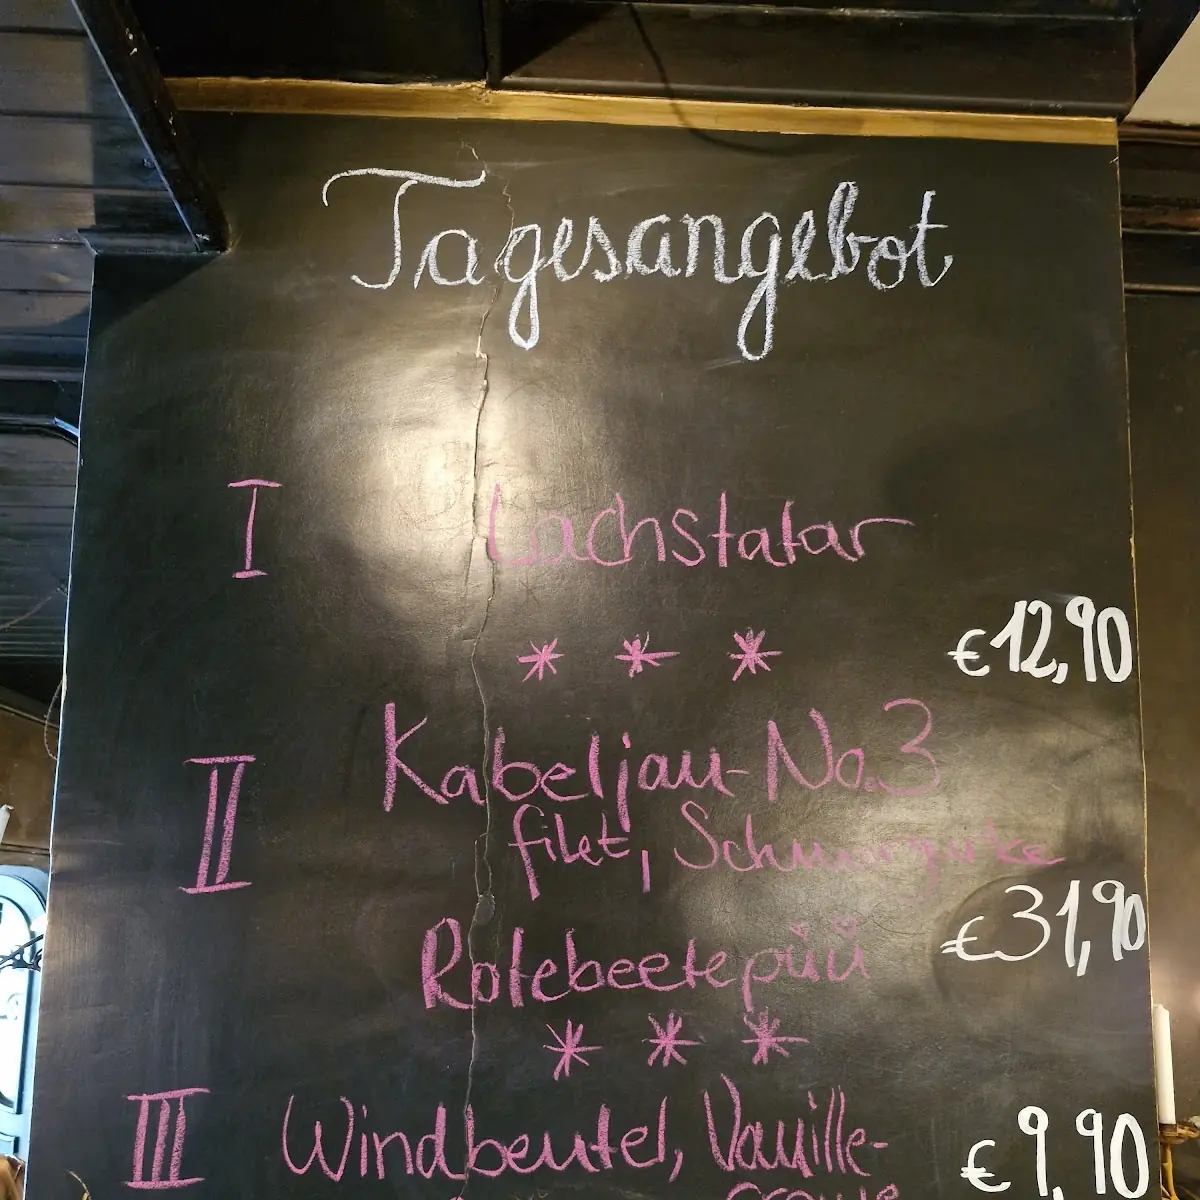 Tagesangebot
I Lachstatar
€12,90
* * *
II Kabeljau-No.3
filet, Schmorgurke
€31,90
Rotebeetepüü
* * *
III Windbeutel, Vanille-
€9,90